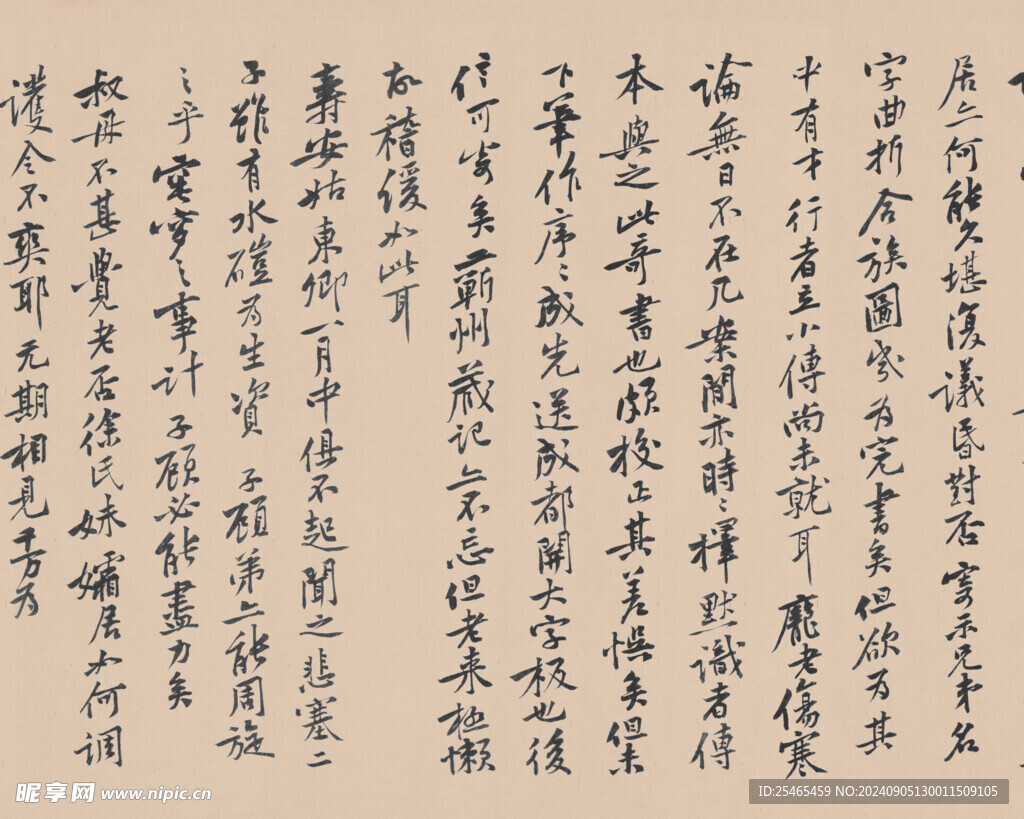 居亦何能久堪復議昏對否寄示兄弟名
字曲折合族圖幾为完書矣但欲为其
中有才行者立小傳尚未就耳龐老傷寒
論無日不在几案間亦時〻擇默識者傳
本與之此奇書也頗校正其差悮矣但未
下筆作序〻成先送成都開大字板也後
信可寄矣王蘄州歲記亦不忘但老来極懶
故稽緩如此耳
壽安姑東卿一月中俱不起聞之悲塞二
子雖有水磑为生資子顧弟亦能周旋
之乎窀穸之事計子顧必能盡力矣
叔母不甚覺老否徐氏妹孀居如何調
護令不爽耶元期相見千万为
昵享网 www.nipic.cn
ID:25465459 NO:20240905130011509105